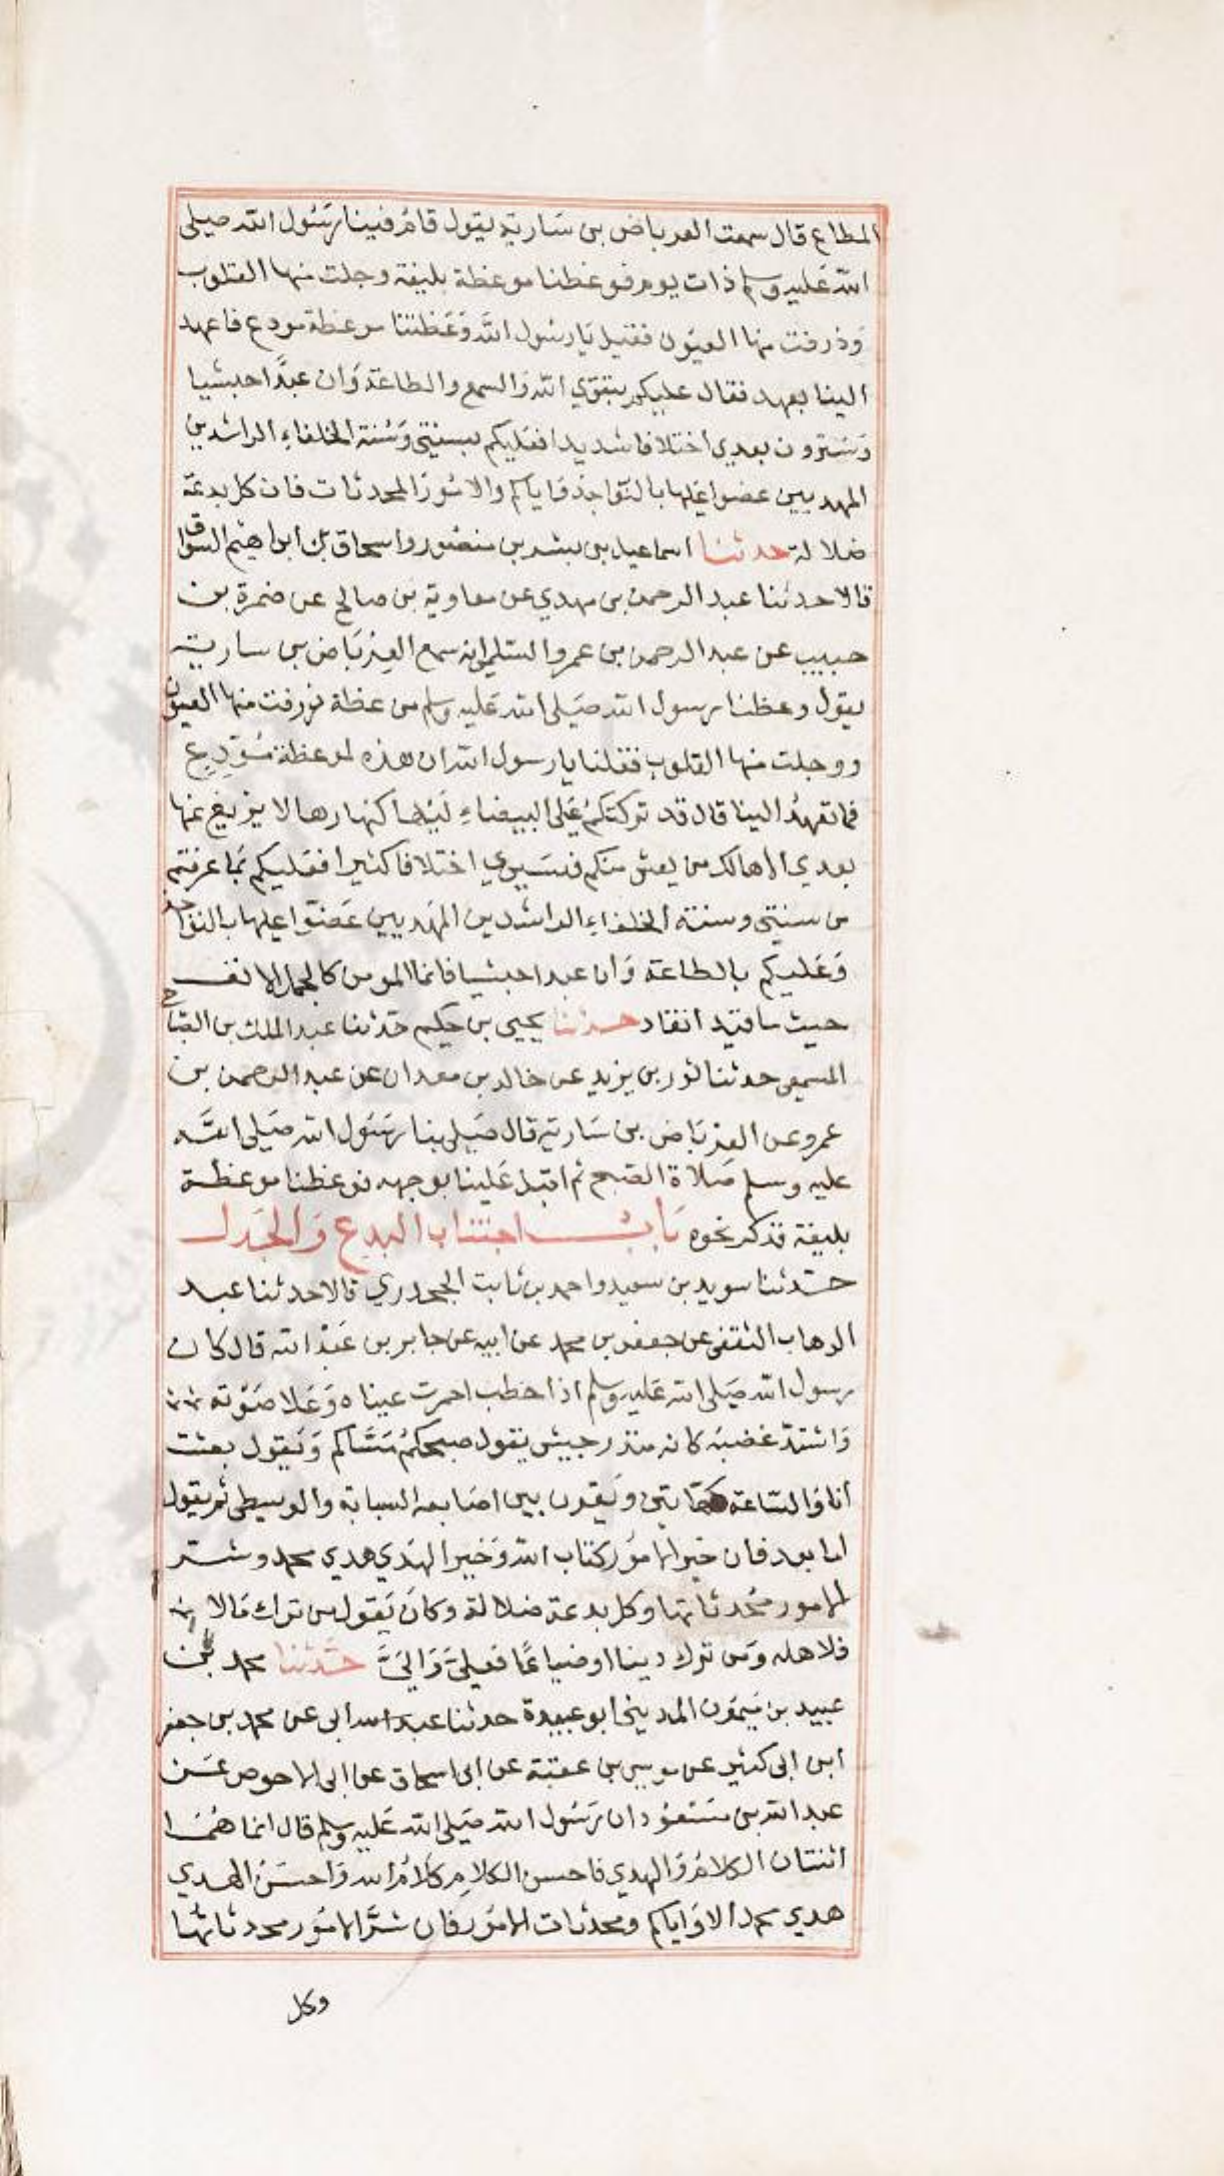 المطاع قال سمعت العرباض بن سارية يقول قام فينا رسول الله صلى
الله عليه وسلم ذات يوم فوعظنا موعظة بليغة وجلت منها القلوب
وذرفت منها العيون فقيل يا رسول الله وعظتنا موعظة مودع فاعهد
الينا بعهد فقال عليكم بتقوي الله والسمع والطاعة وان عبدا حبشيا
وسترون بعدي اختلافا شديدا فعليكم بسنتي وسنة الخلفاء الراشدين
المهديين عضوا عليها بالنواجذ واياكم والامور المحدثات فان كل بدعة
ضلالة حدثنا اسماعيل بن بشر بن منصور واسحاق بن ابراهيم السواق
قالا حدثنا عبد الرحمن بن مهدي عن معاوية بن صالح عن ضمرة بن
حبيب عن عبد الرحمن بن عمرو السلمي انه سمع العرباض بن سارية
يقول وعظنا رسول الله صلى الله عليه وسلم موعظة ذرفت منها العيون
ووجلت منها القلوب فقلنا يا رسول الله ان هذه لموعظة مودع
فما تعهد الينا قال قد تركتكم على البيضاء ليلها كنهارها لا يزيغ عنها
بعدي الا هالك من يعش منكم فسيري اختلافا كثيرا فعليكم بما عرفتم
من سنتي وسنة الخلفاء الراشدين المهديين عضوا عليها بالنواجذ
وعليكم بالطاعة وان عبدا حبشيا فانما المومن كالجمل الانف
حيث ما قيد انقاد حدثنا يحيى بن حكيم حدثنا عبد الملك بن الصباح
المسمعي حدثنا ثور بن يزيد عن خالد بن معدان عن عبد الرحمن بن
عمرو عن العرباض بن سارية قال صلى بنا رسول الله صلى الله
عليه وسلم صلاة الصبح ثم اقبل علينا بوجهه فوعظنا موعظة
بليغة فذكر نحوه باب اجتناب البدع والجدل
حدثنا سويد بن سعيد واحمد بن ثابت الجحدري قالا حدثنا عبد
الوهاب الثقفي عن جعفر بن محمد عن ابيه عن جابر بن عبد الله قال كان
رسول الله صلى الله عليه وسلم اذا خطب احمرت عيناه وعلا صوته
واشتد غضبه كانه منذر جيش يقول صبحكم مساكم ويقول بعثت
انا والساعة كهاتين ويقرن بين اصابعه السبابة والوسطى ثم يقول
اما بعد فان خير الامور كتاب الله وخير الهدي هدي محمد وشر
الامور محدثاتها وكل بدعة ضلالة وكان يقول من ترك مالا
فلاهله ومن ترك دينا او ضياعا فعلي والي حدثنا محمد بن
عبيد بن ميمون المديني ابو عبيدة حدثنا ابي عن محمد بن جعفر
ابن ابي كثير عن موسى بن عقبة عن ابي اسحاق عن ابي الاحوص عن
عبد الله بن مسعود ان رسول الله صلى الله عليه وسلم قال انما هما
اثنتان الكلام والهدي فاحسن الكلام كلام الله واحسن الهدي
هدي محمد الا واياكم ومحدثات الامور فان شر الامور محدثاتها
وكل